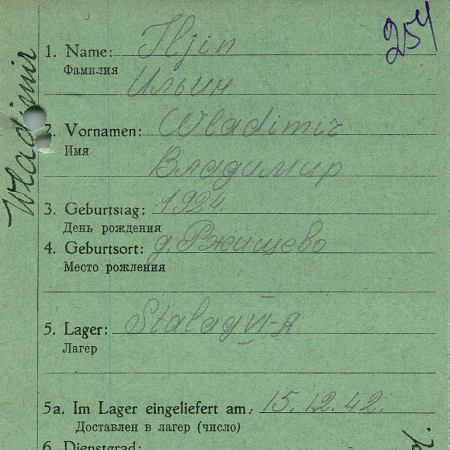 254
Wladimir
1. Name: Iljin
Фамилия Ильин
2. Vornamen: Wladimir
Имя Владимир
3. Geburtstag: 1924.
День рождения
4. Geburtsort: д. Ржищево
Место рождения
5. Lager: Stalag VI-A
Лагер
5a. Im Lager eingeliefert am: 15.12.42.
Доставлен в лагер (число)
6. Dienstgrad: